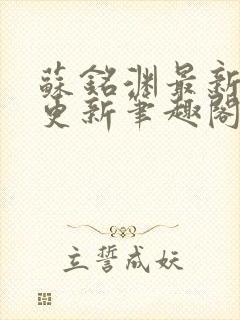 蘇銘淵最新
更新筆趣閣
立誓成妖